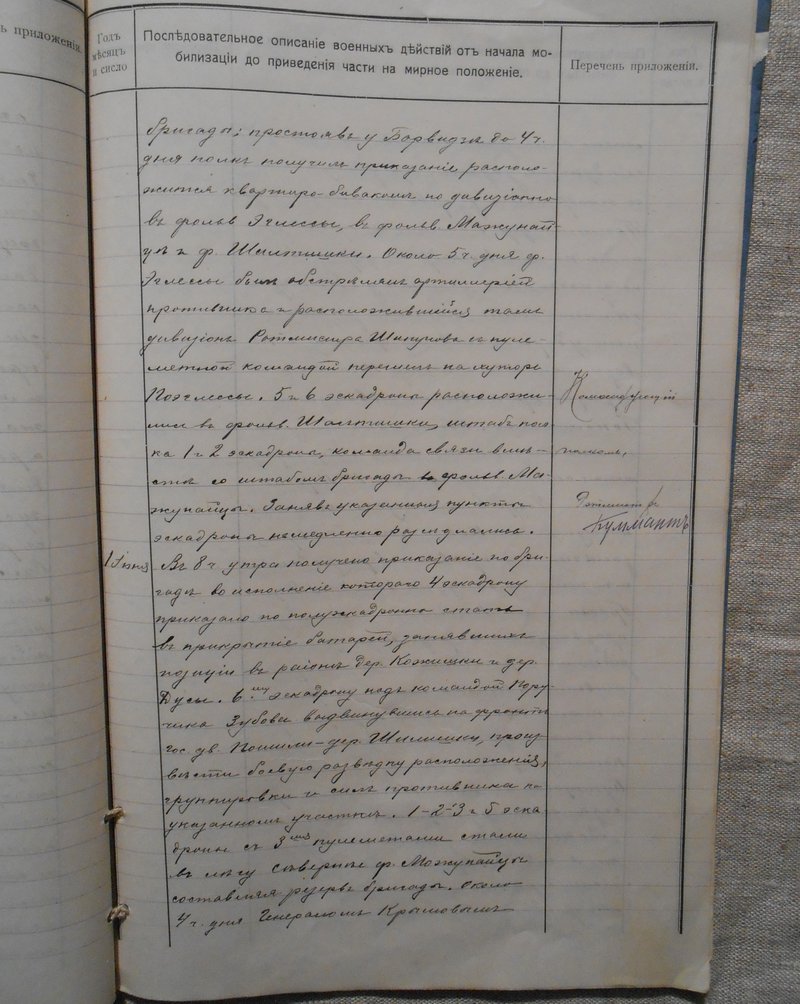 ъ приложенія.
Годъ
мѣсяцъ
и число
Послѣдовательное описаніе военныхъ дѣйствій отъ начала мо-
билизаціи до приведенія части на мирное положеніе.
Перечень приложеній.
бригады; простоявъ у до 4 ч.
дня полкъ получилъ приказаніе располо-
житься квартиро-бивакомъ по дивизіонно
въ фольв. Эглессы, въ фольв. Мажунай
цы и ф. Шилтишки. Около 5 ч. дня ф.
Эглессы былъ обстрѣлянъ артиллеріей
противника и расположившійся тамъ
дивизіонъ Ротмистра съ пуле-
метной командой перешелъ на хуторъ
Поэглессы. 5 и 6 эскадроны расположи-
лись въ фольв. штабъ пол-
ка 1 и 2 эскадроны, команда связи вмѣ-
стѣ со штабомъ бригады въ фольв. Ма-
жунайцы. Занявъ указанные пункты
эскадроны немедленно разсѣдлались.
Командующій
полкомъ,
Ротмистръ
1 Іюня Въ 8 ч. утра получено приказаніе по бри-
гадѣ во исполненіе котораго 4 эскадрону
приказано по полуэскадронно стать
въ прикрытіе батарей, занявшихъ
позиціи въ районѣ дер. Кожишки и дер.
Дусы. 6му эскадрону подъ командой Пору-
чика Зубова выдвинувшись на фронтъ
гос. дв. дер. произ-
вести боевую развѣдку расположенія,
группировки и силъ противника на
указанномъ участкѣ. 1-2-3 и 5 эска-
дроны съ 3мя пулеметами стали
въ лѣсу сѣвернѣе ф. Можунайцы
составляя резервъ бригады. Около
4 ч. дня Генераломъ Крымовымъ